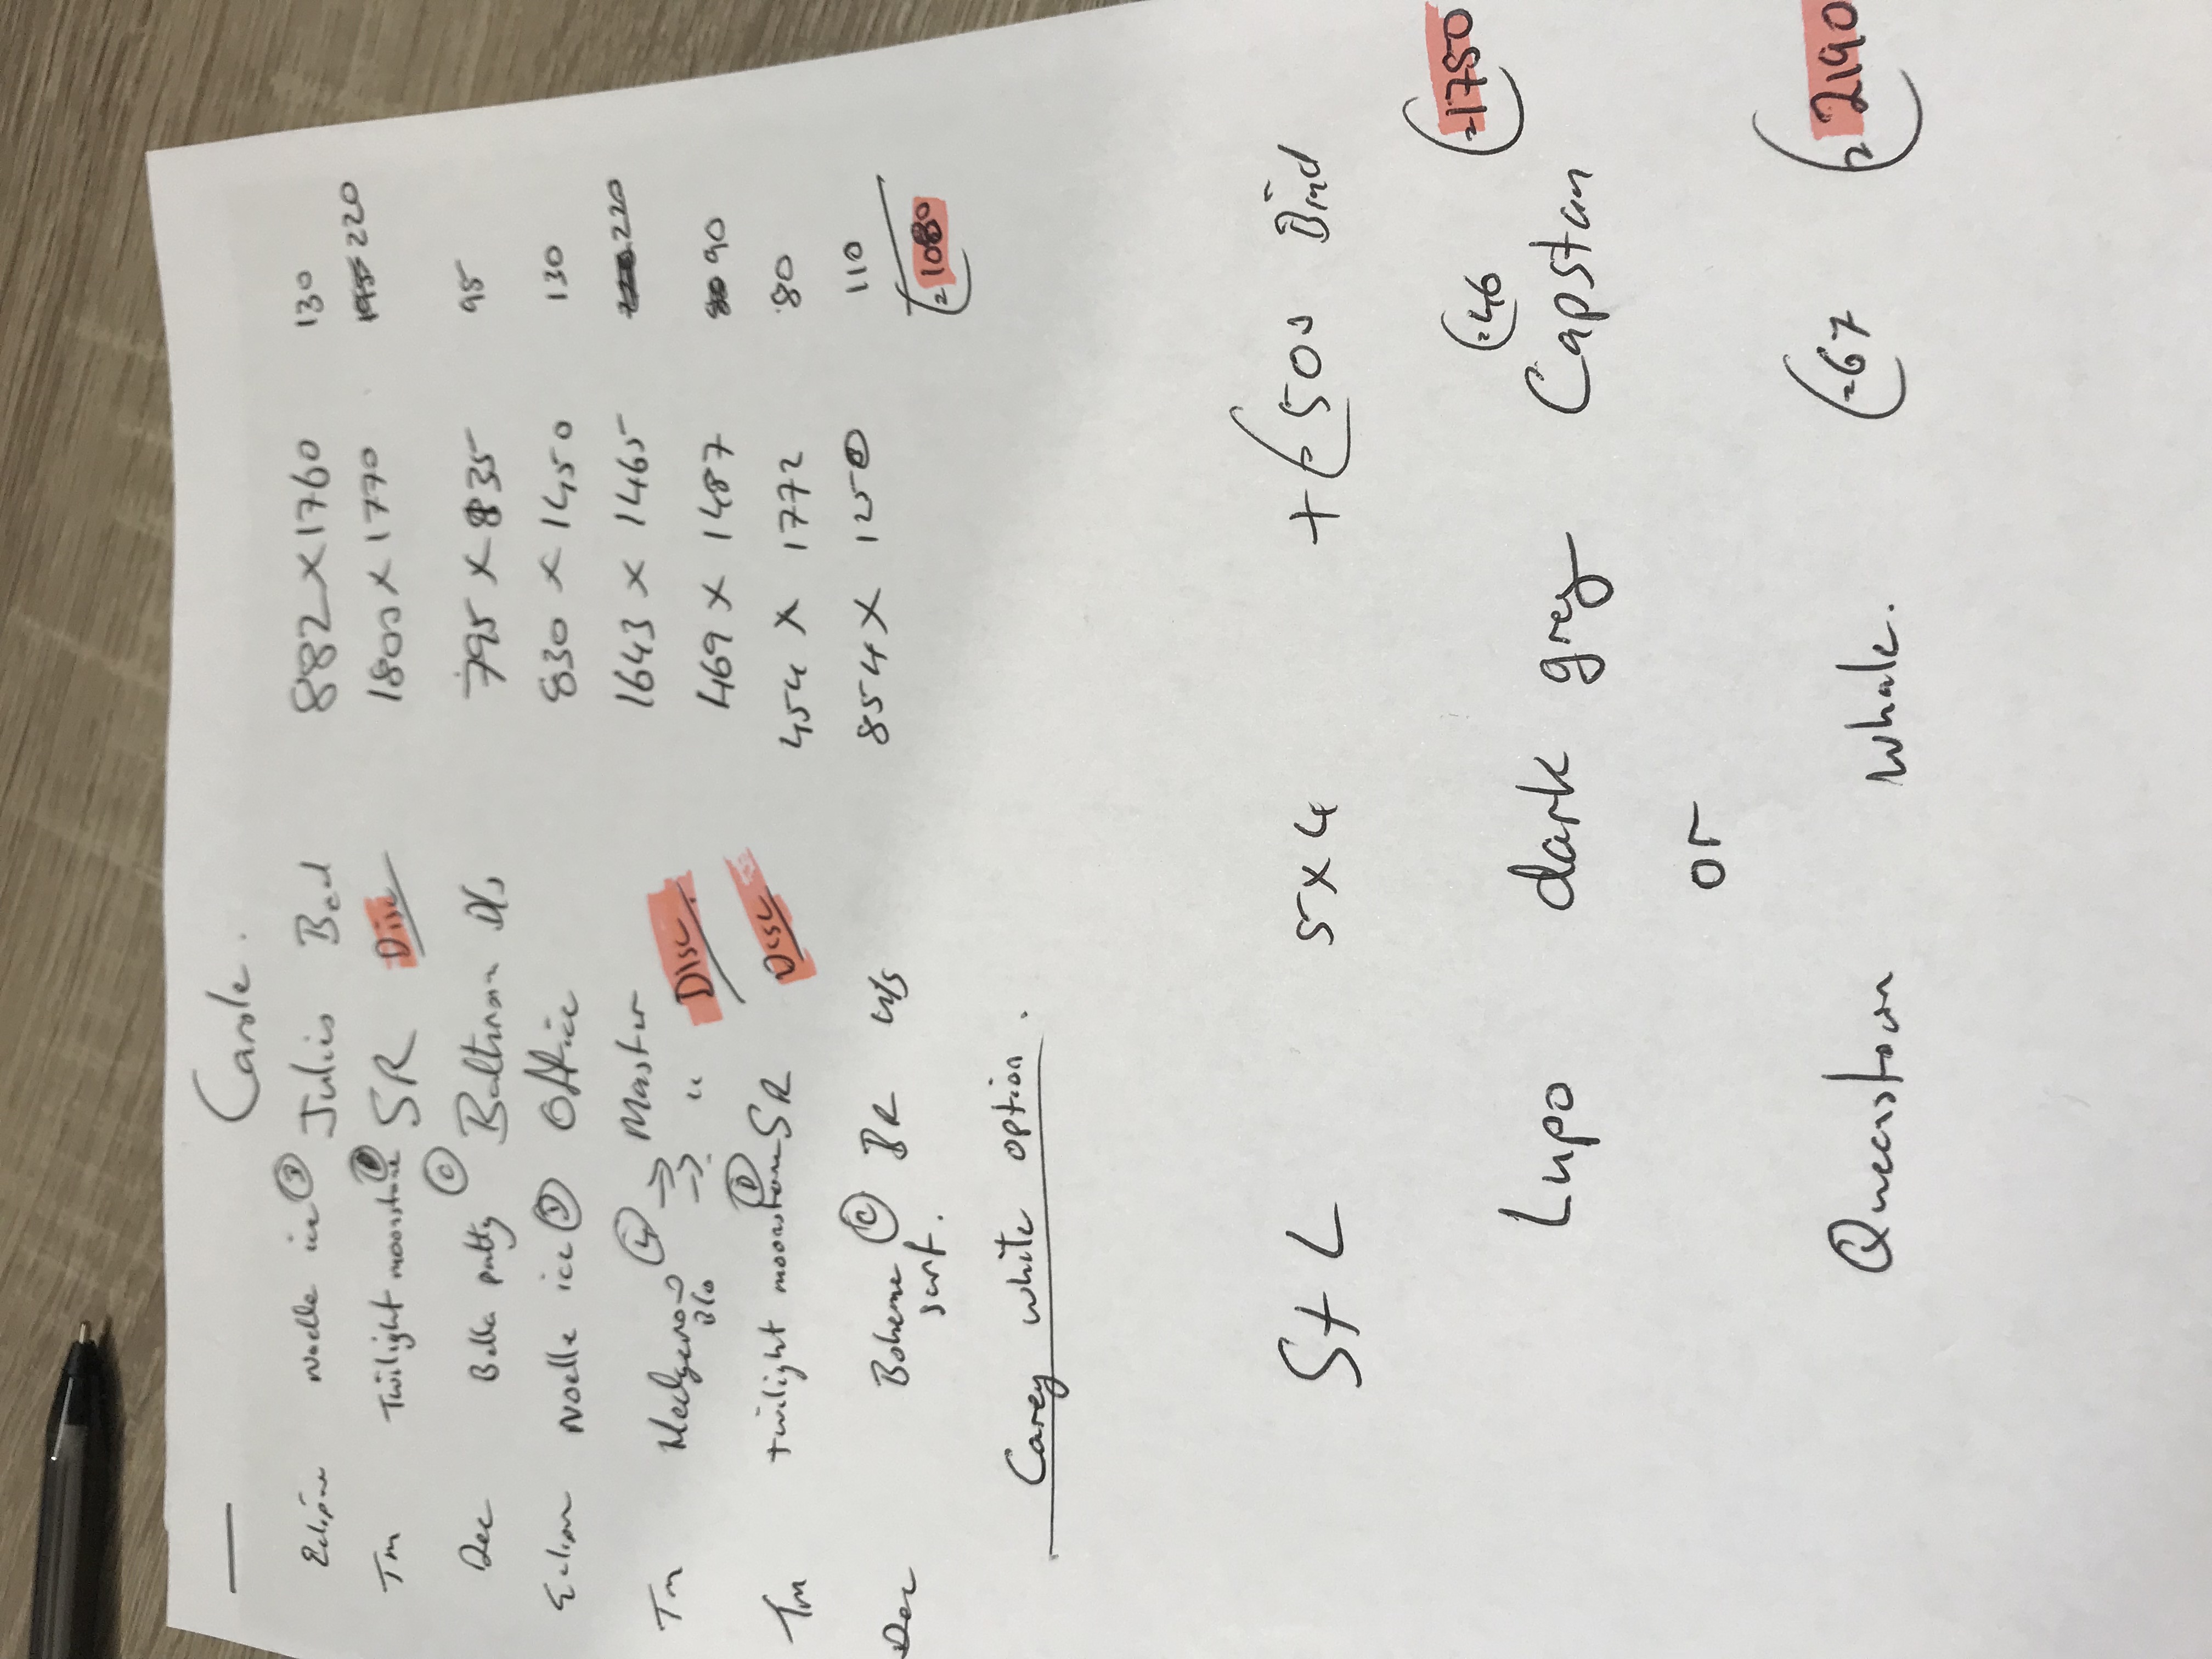 Carole.
Eclipse Noelle ice B Julies Bed 882 x 1760 130
Tm Twilight moonstone SR Disc 1800 x 1770 195 220
Dec Bella putty C Bathroom D/s 795 x 835 95
Eclipse Noelle ice Office 830 x 1450 130
Tm 4 => Master 1643 x 1465 220
-> " Disc. 469 x 1487 80 90
Tm twilight moonstone SR Disc 454 x 1772 80
Dec Boheme C BR 854 x 1250 110
surf.
£1080
Carey white option.
S+L 5x4 + £50 Bind
£46 £1750
Lupo dark grey Capstan
or
Queenstown whale. £67 £2190